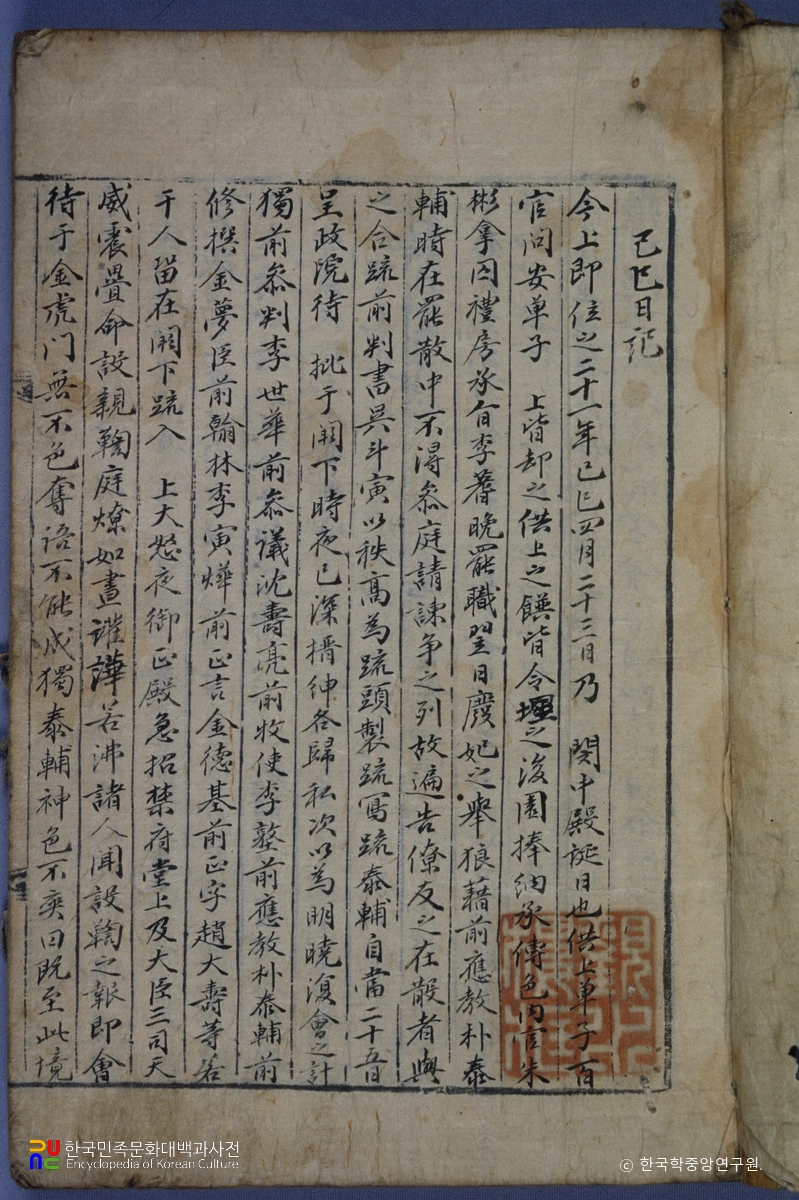 己巳日記
今上即位之二十一年己巳四月二十三日乃 閔中殿誕日也供上單子百
官問安單子 上皆却之供上之饌皆令埋之後園捧納承傳色內官朱
彬拿囚禮房承旨李蓍晚罷職翌日廢妃之擧狼藉前應敎朴泰
輔時在罷散中不得叅庭請諫爭之列故遍告僚友之在散者與
之合疏前判書吳斗寅以秩高爲疏頭製疏寫疏泰輔自當二十五日
呈政院待 批于闕下時夜已深搢紳各歸私次以爲明曉復會之計
獨前叅判李世華前叅議沈壽亮前牧使李墪前應敎朴泰輔前
修撰金夢臣前翰林李寅燁前正言金德基前正字趙大壽等若
干人留在闕下疏入 上大怒夜御正殿急招禁府堂上及大臣三司天
威震疊命設親鞫庭燎如晝讙譁若沸諸人聞設鞫之報即會
待于金虎門無不色奪語不能成獨泰輔神色不爽曰旣至此境
한국민족문화대백과사전
Encyclopedia of Korean Culture
© 한국학중앙연구원.